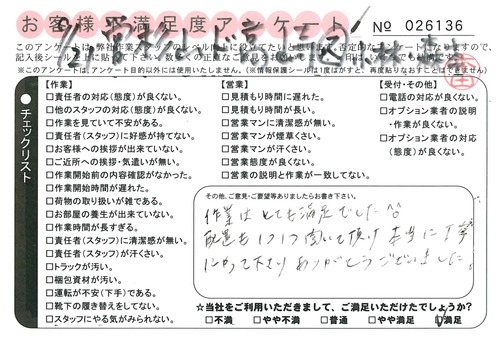 お客様満足度アンケート
№ 026136
チェックリスト
【作業】
□責任者の対応(態度)が良くない。
□他のスタッフの対応(態度)が良くない。
□作業を見ていて不安がある。
□責任者(スタッフ)に好感が持てない。
□お客様への挨拶が出来ていない。
□ご近所への挨拶・気遣いが無い。
□作業開始前の内容確認がなかった。
□作業開始時間が遅れた。
□荷物の取り扱いが雑である。
□お部屋の養生が出来ていない。
□作業時間が長すぎる。
□責任者(スタッフ)に清潔感が無い。
□責任者(スタッフ)が汗くさい。
□トラックが汚い。
□梱包資材が汚い。
□運転が不安(下手)である。
□靴下の履き替えをしてない。
□スタッフにやる気がみられない。
【営業】
□見積もり時間に遅れた。
□見積もり時間が長い。
□営業マンに清潔感が無い。
□営業マンが煙草くさい。
□営業マンが汗くさい。
□営業態度が良くない。
□営業の説明と作業が一致してない。
【受付・その他】
□電話の対応が良くない。
□オプション業者の説明
・作業が良くない。
□オプション業者の対応
(態度)が良くない。
その他、ご意見・ご要望等ありましたらお書き下さい。
作業はとても満足でした^^
配置も1つ1つ聞いて頂け 本当に丁寧
にやって下さり ありがとうございました。
☆当社をご利用いただきまして、ご満足いただけたでしょうか?
□不満 □やや不満 □普通 □やや満足 □満足